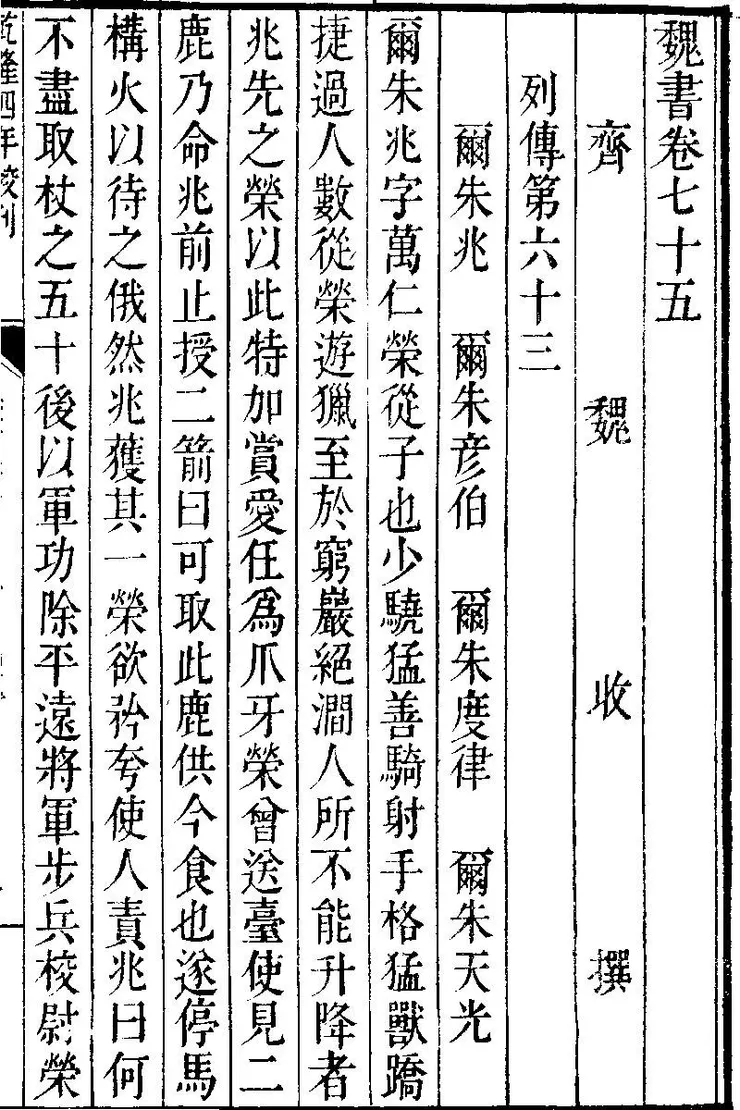 魏書卷七十五
齊 魏 收 撰
列傳第六十三
爾朱兆 爾朱彦伯 爾朱度律 爾朱天光
爾朱兆字萬仁榮從子也少驍猛善騎射手格猛獸蹻
捷過人數從榮遊獵至於窮巖絕澗人所不能升降者
兆先之榮以此特加賞愛任爲爪牙榮曾送臺使見二
鹿乃命兆前止授二箭曰可取此鹿供今食也遂停馬
構火以待之俄然兆獲其一榮欲矜夸使人責兆曰何
不盡取杖之五十後以軍功除平遠將軍步兵校尉榮
乾隆四年校刊